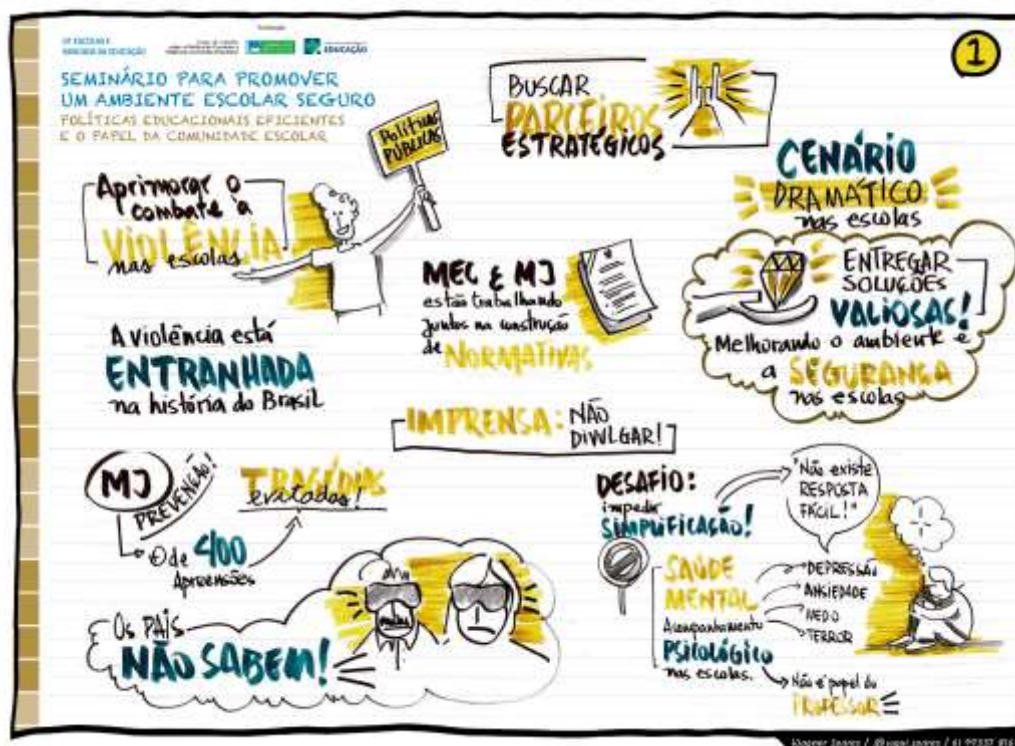 1
EDUCAÇÃO
SEMINÁRIO PARA PROMOVER
UM AMBIENTE ESCOLAR SEGURO
POLÍTICAS EDUCACIONAIS EFICIENTES
E O PAPEL DA COMUNIDADE ESCOLAR
BUSCAR
PARCEIROS
ESTRATÉGICOS
POLÍTICAS
PÚBLICAS
Aprimorar o
combate à
VIOLÊNCIA
nas escolas
CENÁRIO
DRAMÁTICO
nas escolas
ENTREGAR
SOLUÇÕES
VALIOSAS!
Melhorando o ambiente e
a SEGURANÇA
nas escolas
MEC E MJ
estão trabalhando
juntos na construção
de NORMATIVAS
A violência está
ENTRANHADA
na história do Brasil
IMPRENSA: NÃO
DIVULGAR!
MJ
PREVENÇÃO!
TRAGÉDIAS
evitadas!
de 400
Apreensões
OS PAIS
NÃO SABEM!
DESAFIO:
impedir
SIMPLIFICAÇÃO!
"Não existe
RESPOSTA
FÁCIL!"
SAÚDE
MENTAL
DEPRESSÃO
ANSIEDADE
MEDO
TERROR
Acompanhamento
PSICOLÓGICO
nas escolas.
Não é papel do
PROFESSOR